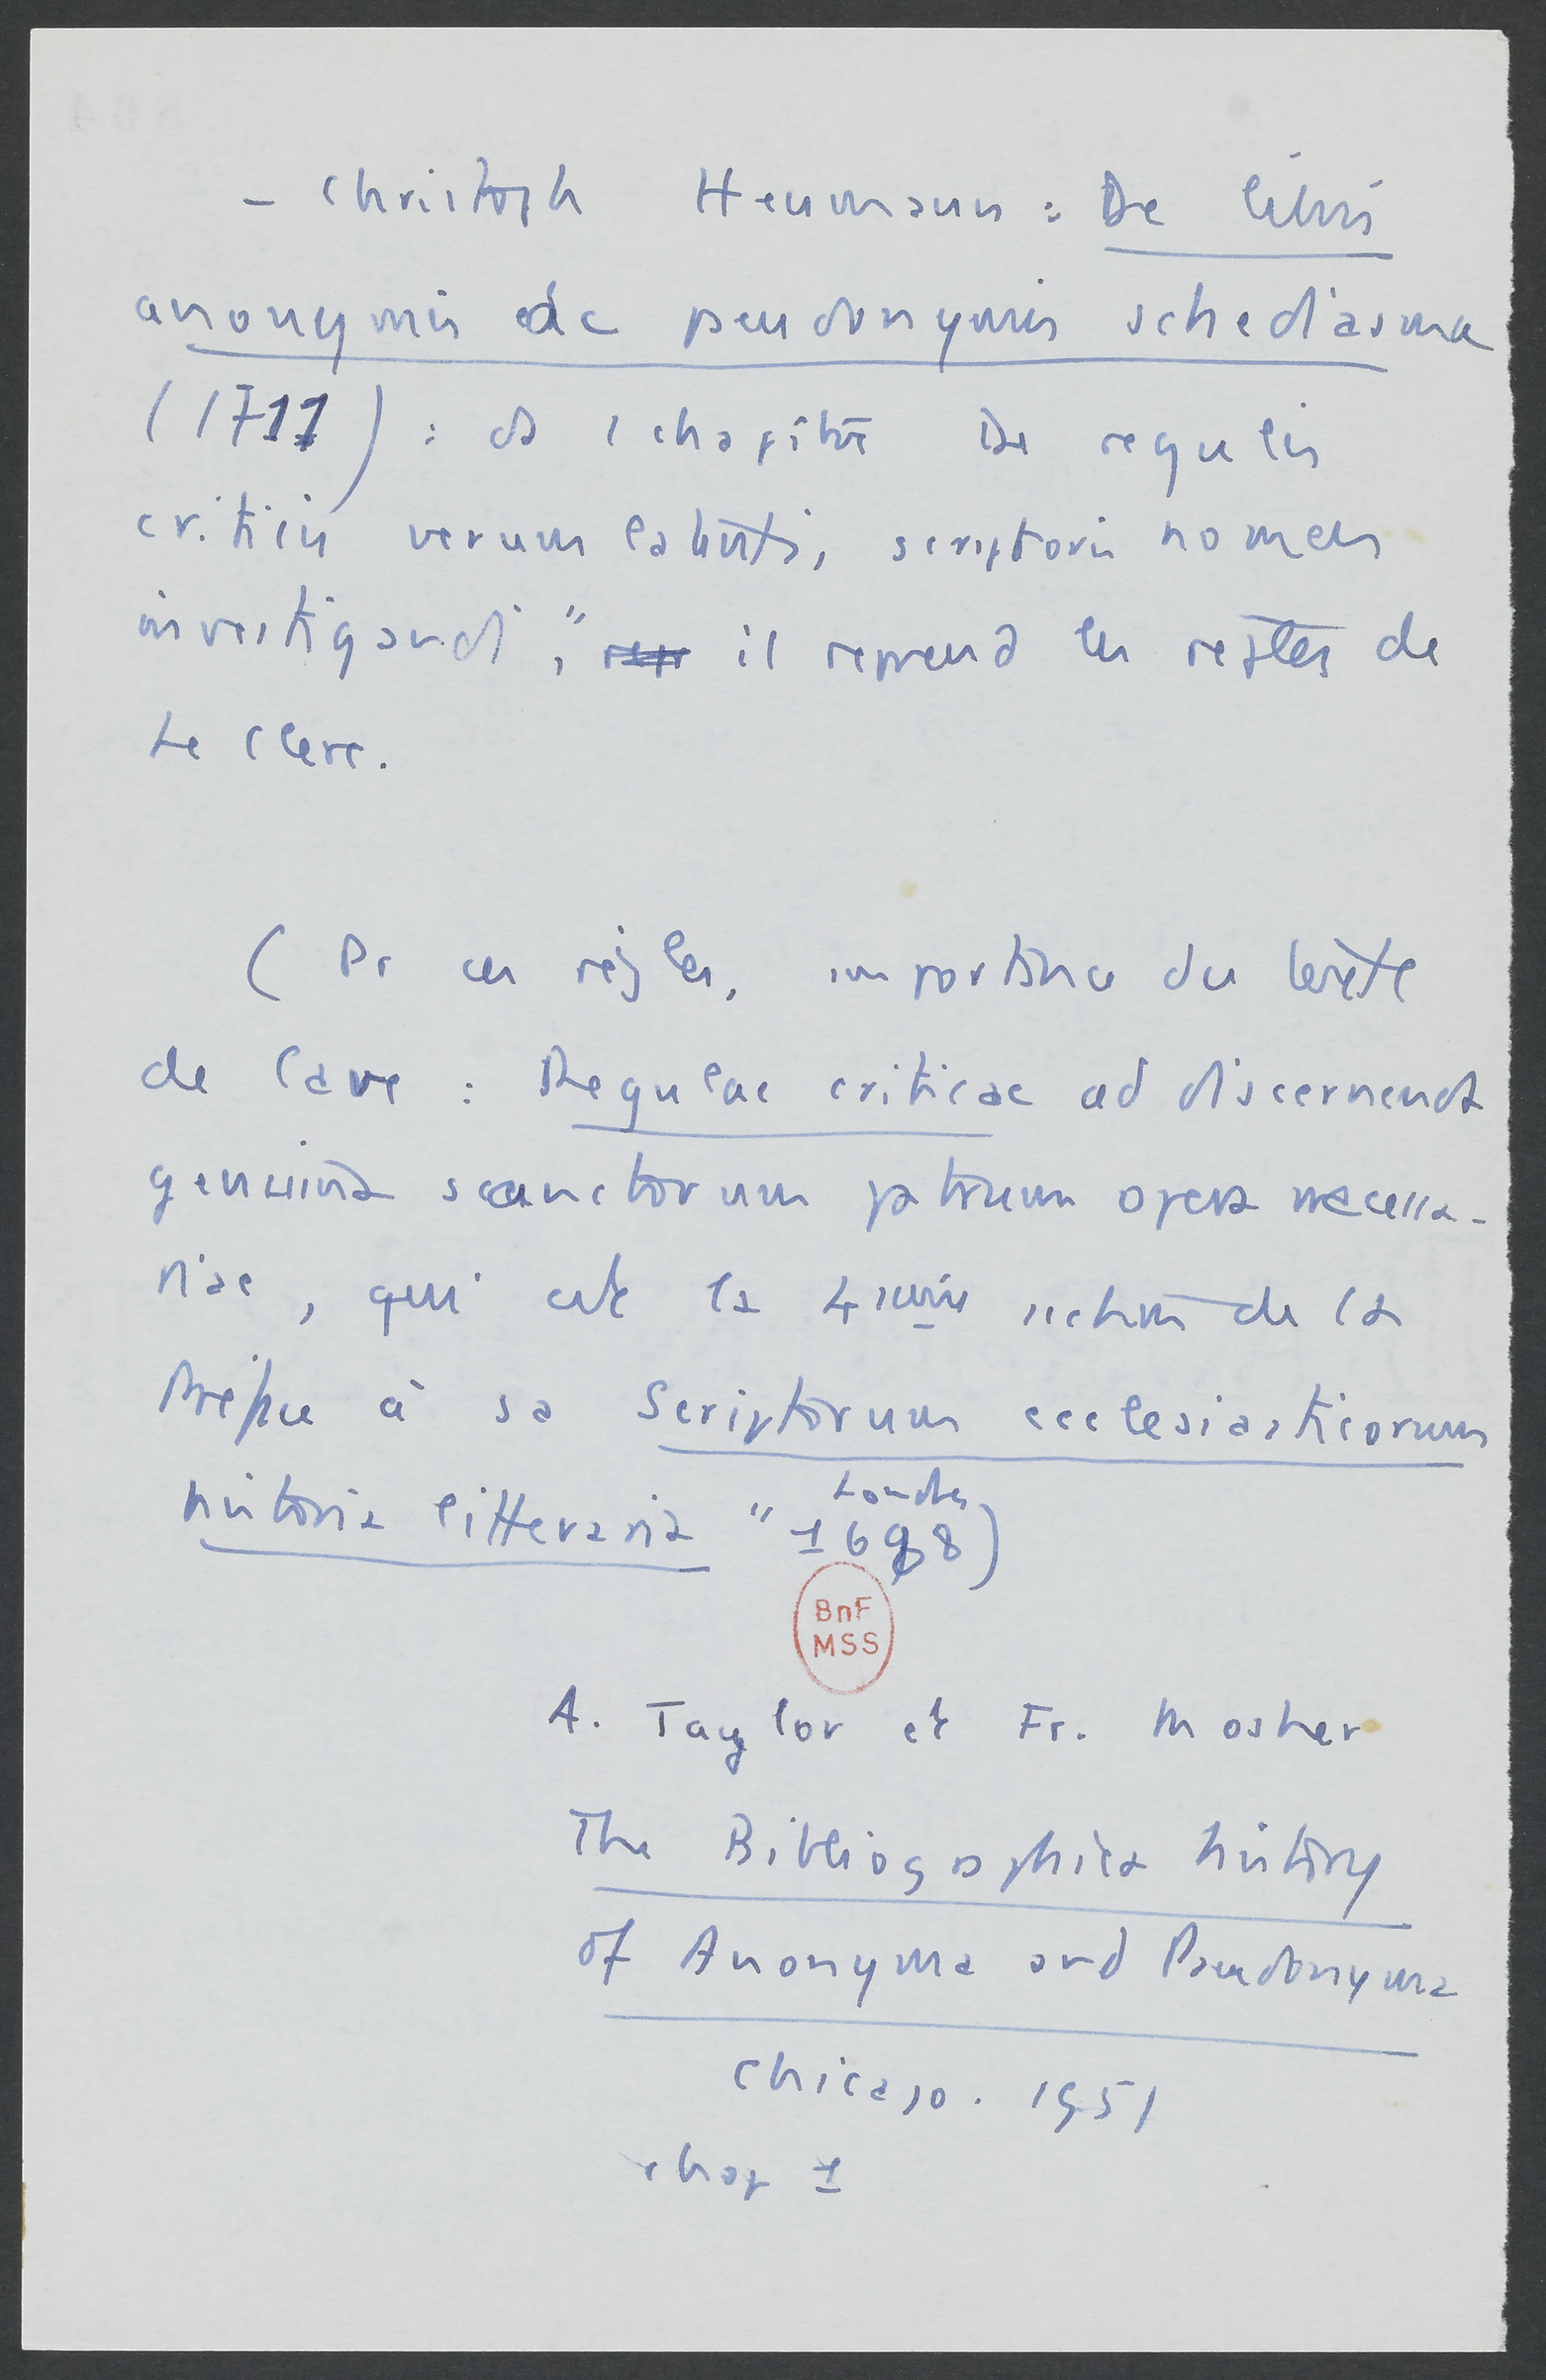 - Christoph Heumann : De libris
anonymis ac pseudonymis schediasma
(1711) : ds 1 chapitre De regulis
criticis verum latentis, scriptoris nomen
investigandi," il reprend les règles de
Le Clerc.
( Pr ces règles, importance du texte
de Cave : Regulae criticae ad discernenda
genuina sanctorum patrum opera necessa-
riae, qui est la 4ième section de la
Préface à sa Scriptorum ecclesiasticorum
historia litteraria " Londres 1688)
BnF
MSS
A. Taylor et Fr. Mosher
The Bibliographica history
of Anonyma and Pseudonyma
Chicago. 1951
chap 1